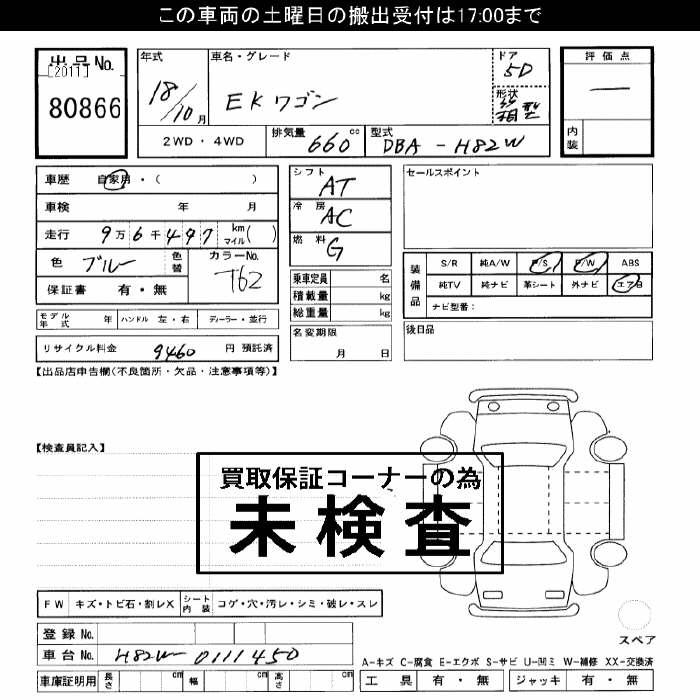 この車両の土曜日の搬出受付は17:00まで
出品No.
[2011]
80866
年式
18/10月
車名・グレード
EKワゴン
ドア
5D
形状
箱型
評価点
―
内装
2WD・4WD
排気量 660cc
型式 DBA-H82W
車歴 自家用・( )
車検 年 月
走行 9万6千497 km マイル( )
色 ブルー 色替
カラーNo. T62
保証書 有・無
モデル年式 年 ハンドル 左・右 ディーラー・並行
リサイクル料金 9460 円 預託済
シフト AT
冷房 AC
燃料 G
乗車定員 名
積載量 kg
総重量 kg
名変期限 月 日
セールスポイント
装備品
S/R 純A/W P/S P/W ABS
純TV 純ナビ 革シート 外ナビ エアB
ナビ型番:
後日品
【出品店申告欄(不良箇所・欠品・注意事項等)】
【検査員記入】
買取保証コーナーの為
未検査
FW キズ・トビ石・割レX シート内装 コゲ・穴・汚レ・シミ・破レ・スレ
登録No.
車台No. H82W-0111450
車庫証明用 長さ cm 幅 cm 高さ cm
スペア
A-キズ C-腐食 E-エクボ S-サビ U-凹ミ W-補修 XX-交換済
工具 有・無 ジャッキ 有・無